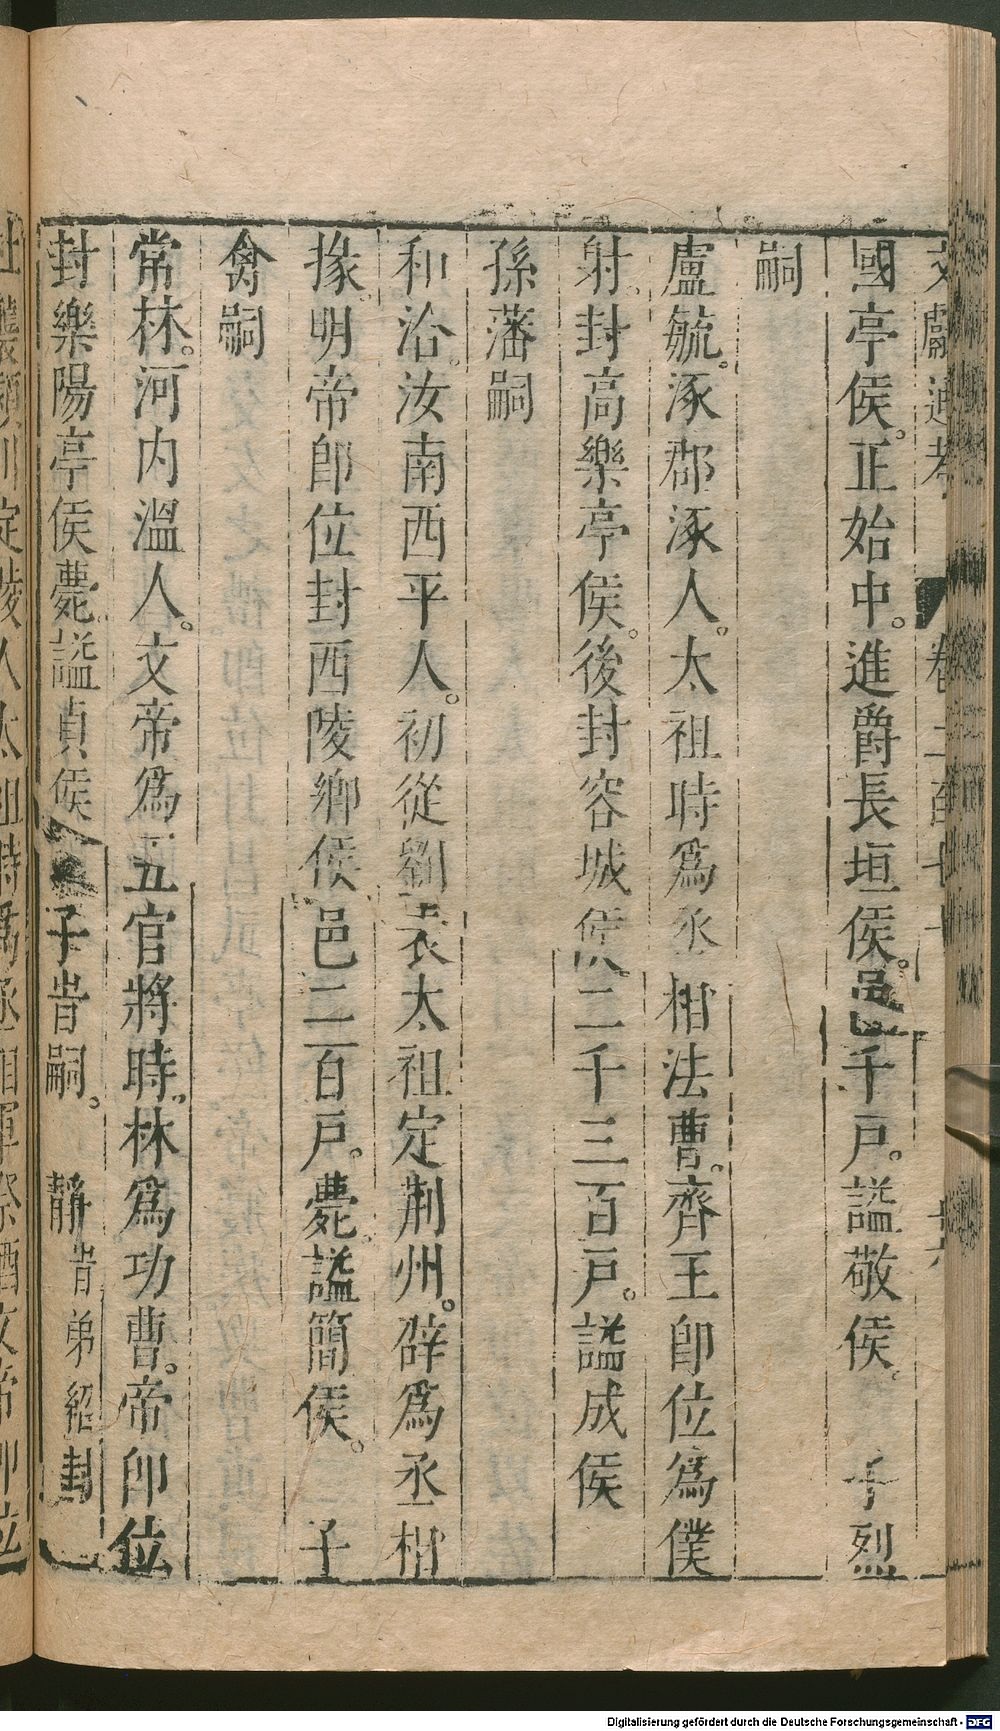 文獻通考 卷二百七十
國亭侯。正始中。進爵長垣侯。邑千戶。謚敬侯。子烈
嗣
盧毓。涿郡涿人。太祖時爲丞相法曹。齊王即位爲僕
射。封高樂亭侯。後封容城侯。二千三百戶。謚成侯
孫藩嗣
和洽。汝南西平人。初從劉表太祖定荆州。辟爲丞相
掾。明帝即位封西陵鄉侯邑二百戶。薨。謚簡侯。子
禽嗣
常林。河內溫人。文帝爲五官將時。林爲功曹。帝卽位
封樂陽亭侯薨。謚貞侯 子旹嗣。 靜旹弟紹封
Digitalisierung gefördert durch die Deutsche Forschungsgemeinschaft - DFG